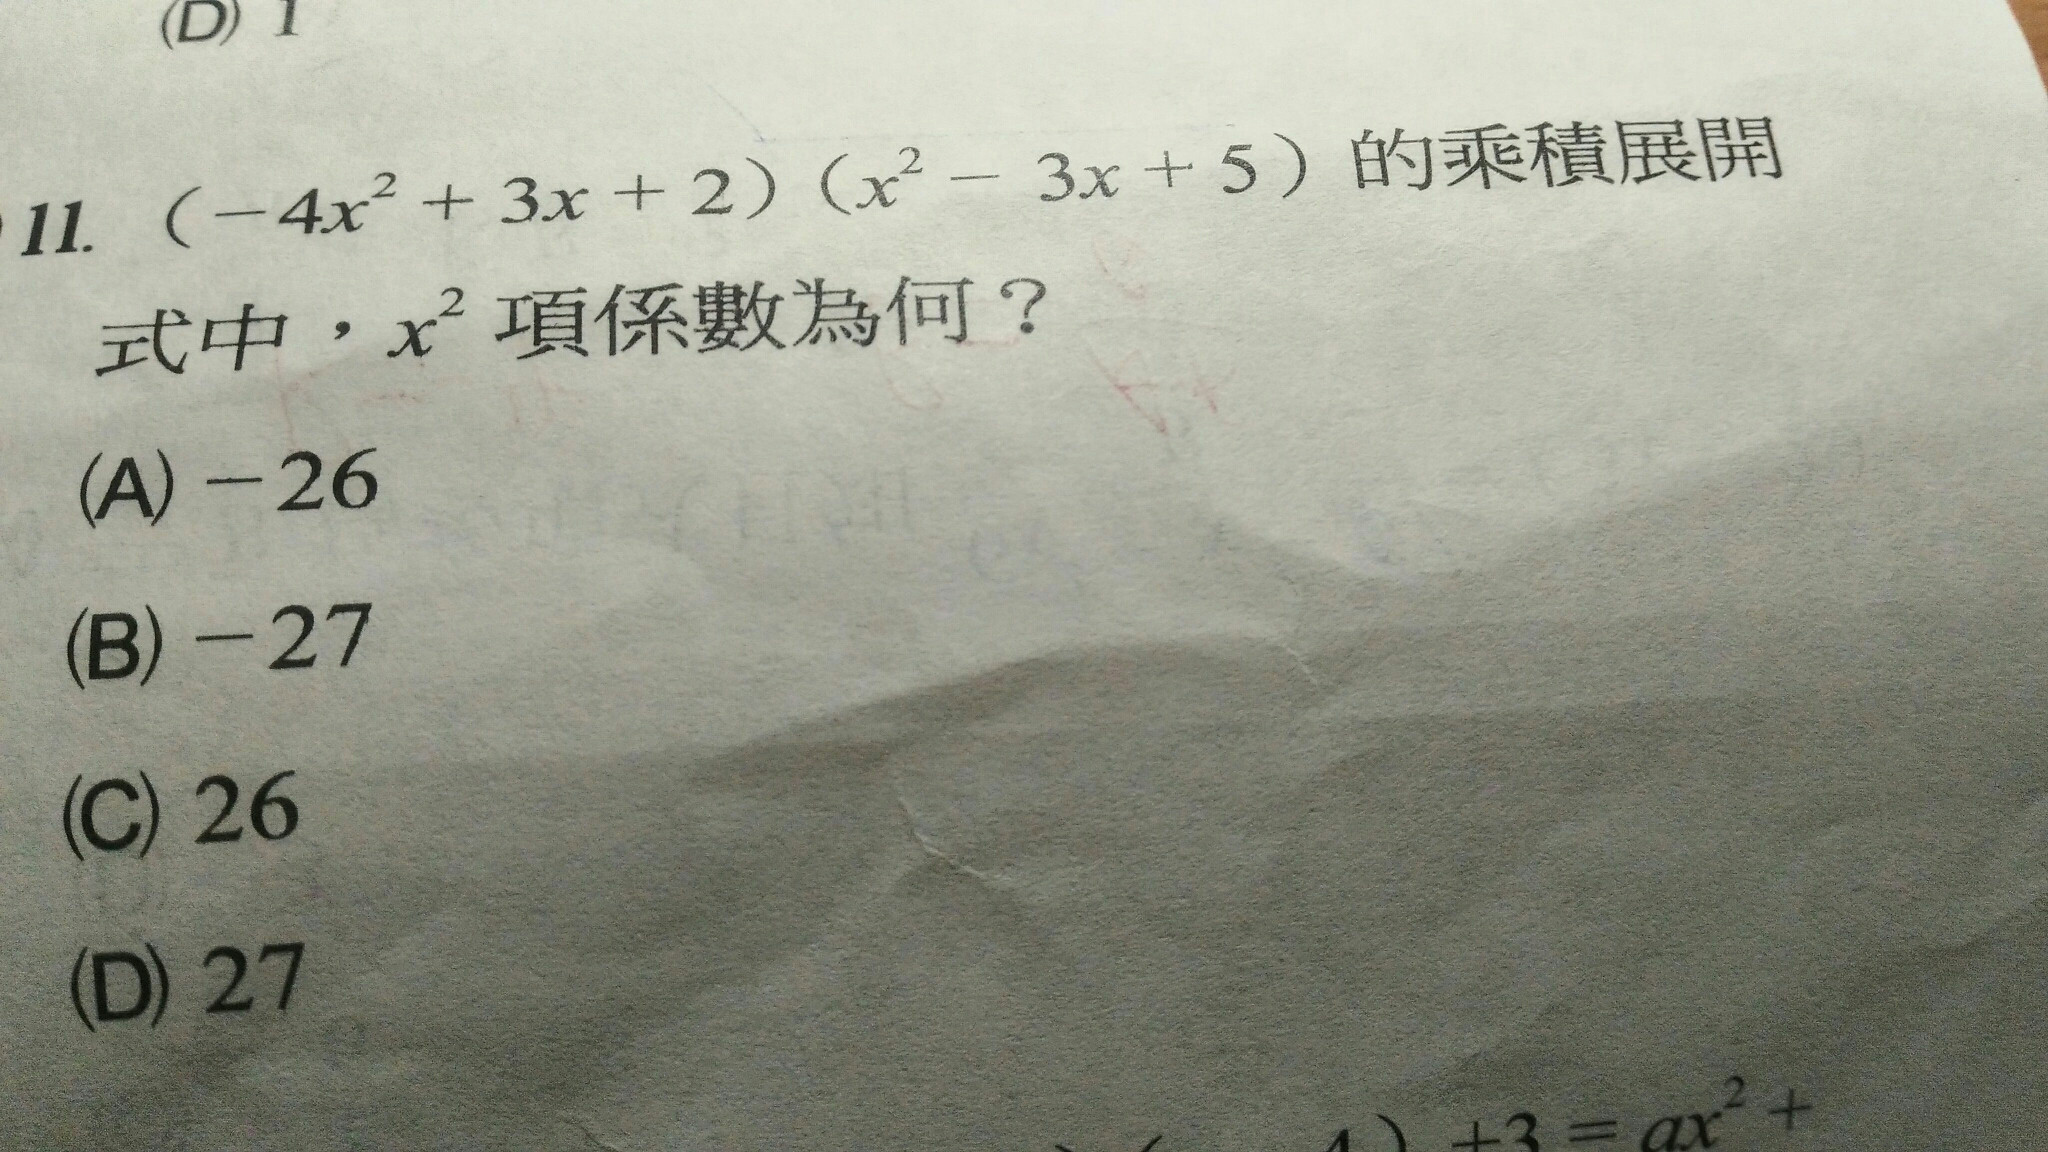 (D) 1
11. (－4x² + 3x + 2)(x² － 3x + 5)的乘積展開
式中，x² 項係數為何？
(A) －26
(B) －27
(C) 26
(D) 27
4) +3 = ax² +